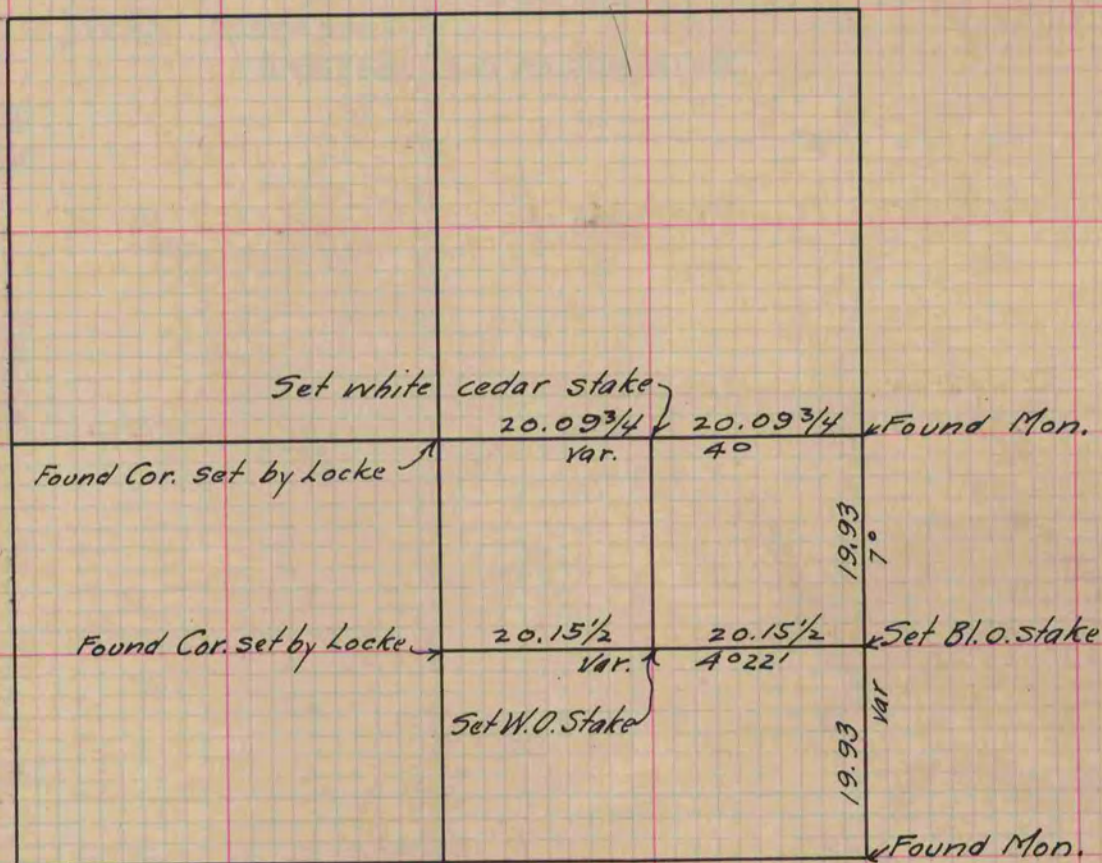 Set white cedar stake
20.09 3/4 20.09 3/4
Found Mon.
Var. 4°
Found Cor. set by Locke
19.93
7°
Found Cor. set by Locke
20.15 1/2 20.15 1/2
Set Bl. O. stake
Var. 4°22'
Set W.O. Stake
Var
19.93
Found Mon.